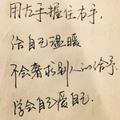 用左手握住右手，
给自己温暖
不会奢求别人的给予，
学会自己爱自己.